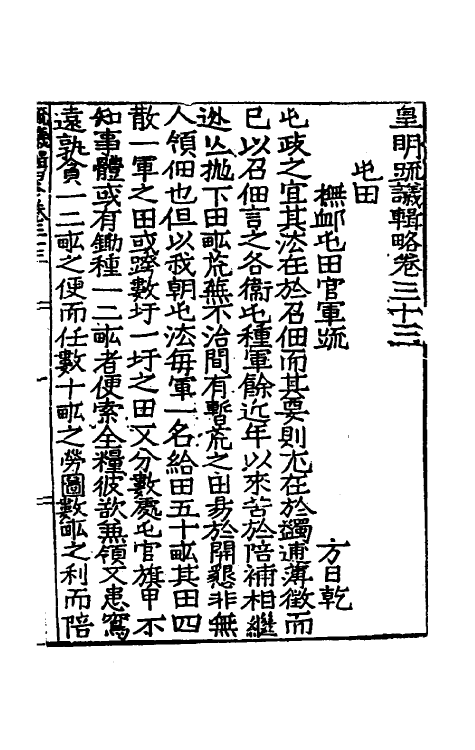 皇明疏議輯略卷三十三
屯田
撫卹屯田官軍疏 方日乾
屯政之宜其法在於召佃而其要則尤在於蠲逋薄徵而
已以召佃言之各衞屯種軍餘近年以來苦於陪補相繼
逃亾抛下田畝荒蕪不治間有暫荒之田易於開懇非無
人領佃也但以我朝屯法每軍一名給田五十畝其田四
散一軍之田或跨數圩一圩之田又分數處屯官旗甲不
知事體或有鋤種一二畝者便索全糧彼欲兼領又患窵
遠孰貪一二畝之便而任數十畝之勞圖數畝之利而陪